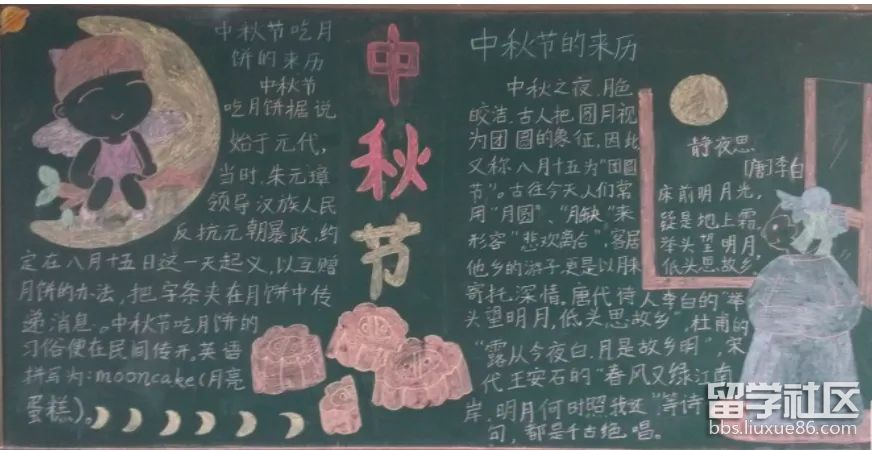 中秋节吃月
饼的来历
中秋节
吃月饼据说
始于元代，
当时，朱元璋
领导汉族人民
反抗元朝暴政，约
定在八月十五日这一天起义，以互赠
月饼的办法，把字条夹在月饼中传
递消息。中秋节吃月饼的
习俗便在民间传开。英语
拼写为：mooncake(月亮
蛋糕)。
中
秋
节
中秋节的来历
中秋之夜，月色
皎洁，古人把圆月视
为团圆的象征，因此
又称八月十五为"团圆
节"。古往今天人们常
用"月圆"、"月缺"来
形容"悲欢离合"，客居
他乡的游子，更是以月来
寄托深情。唐代诗人李白的"举
头望明月，低头思故乡"，杜甫的
"露从今夜白，月是故乡明"宋
代王安石的"春风又绿江南
岸，明月何时照我还"等诗
句，都是千古绝唱。
静夜思
[唐]李白
床前明月光，
疑是地上霜，
举头望明月，
低头思故乡。
留学社区
bbs.liuxue86.com